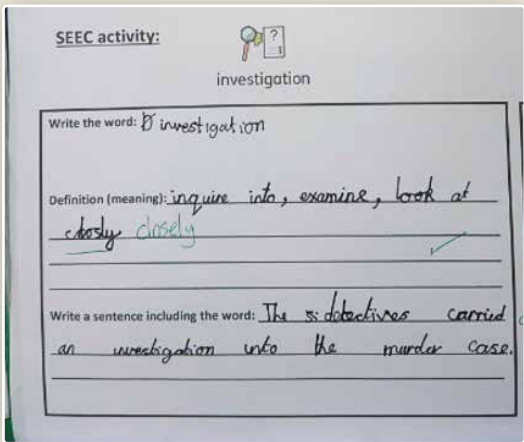 SEEC activity:
?
investigation
Write the word: investigation
Definition (meaning): inquire into, examine, look at
closly closely
Write a sentence including the word: The detectives carried
an investigation into the murder case.